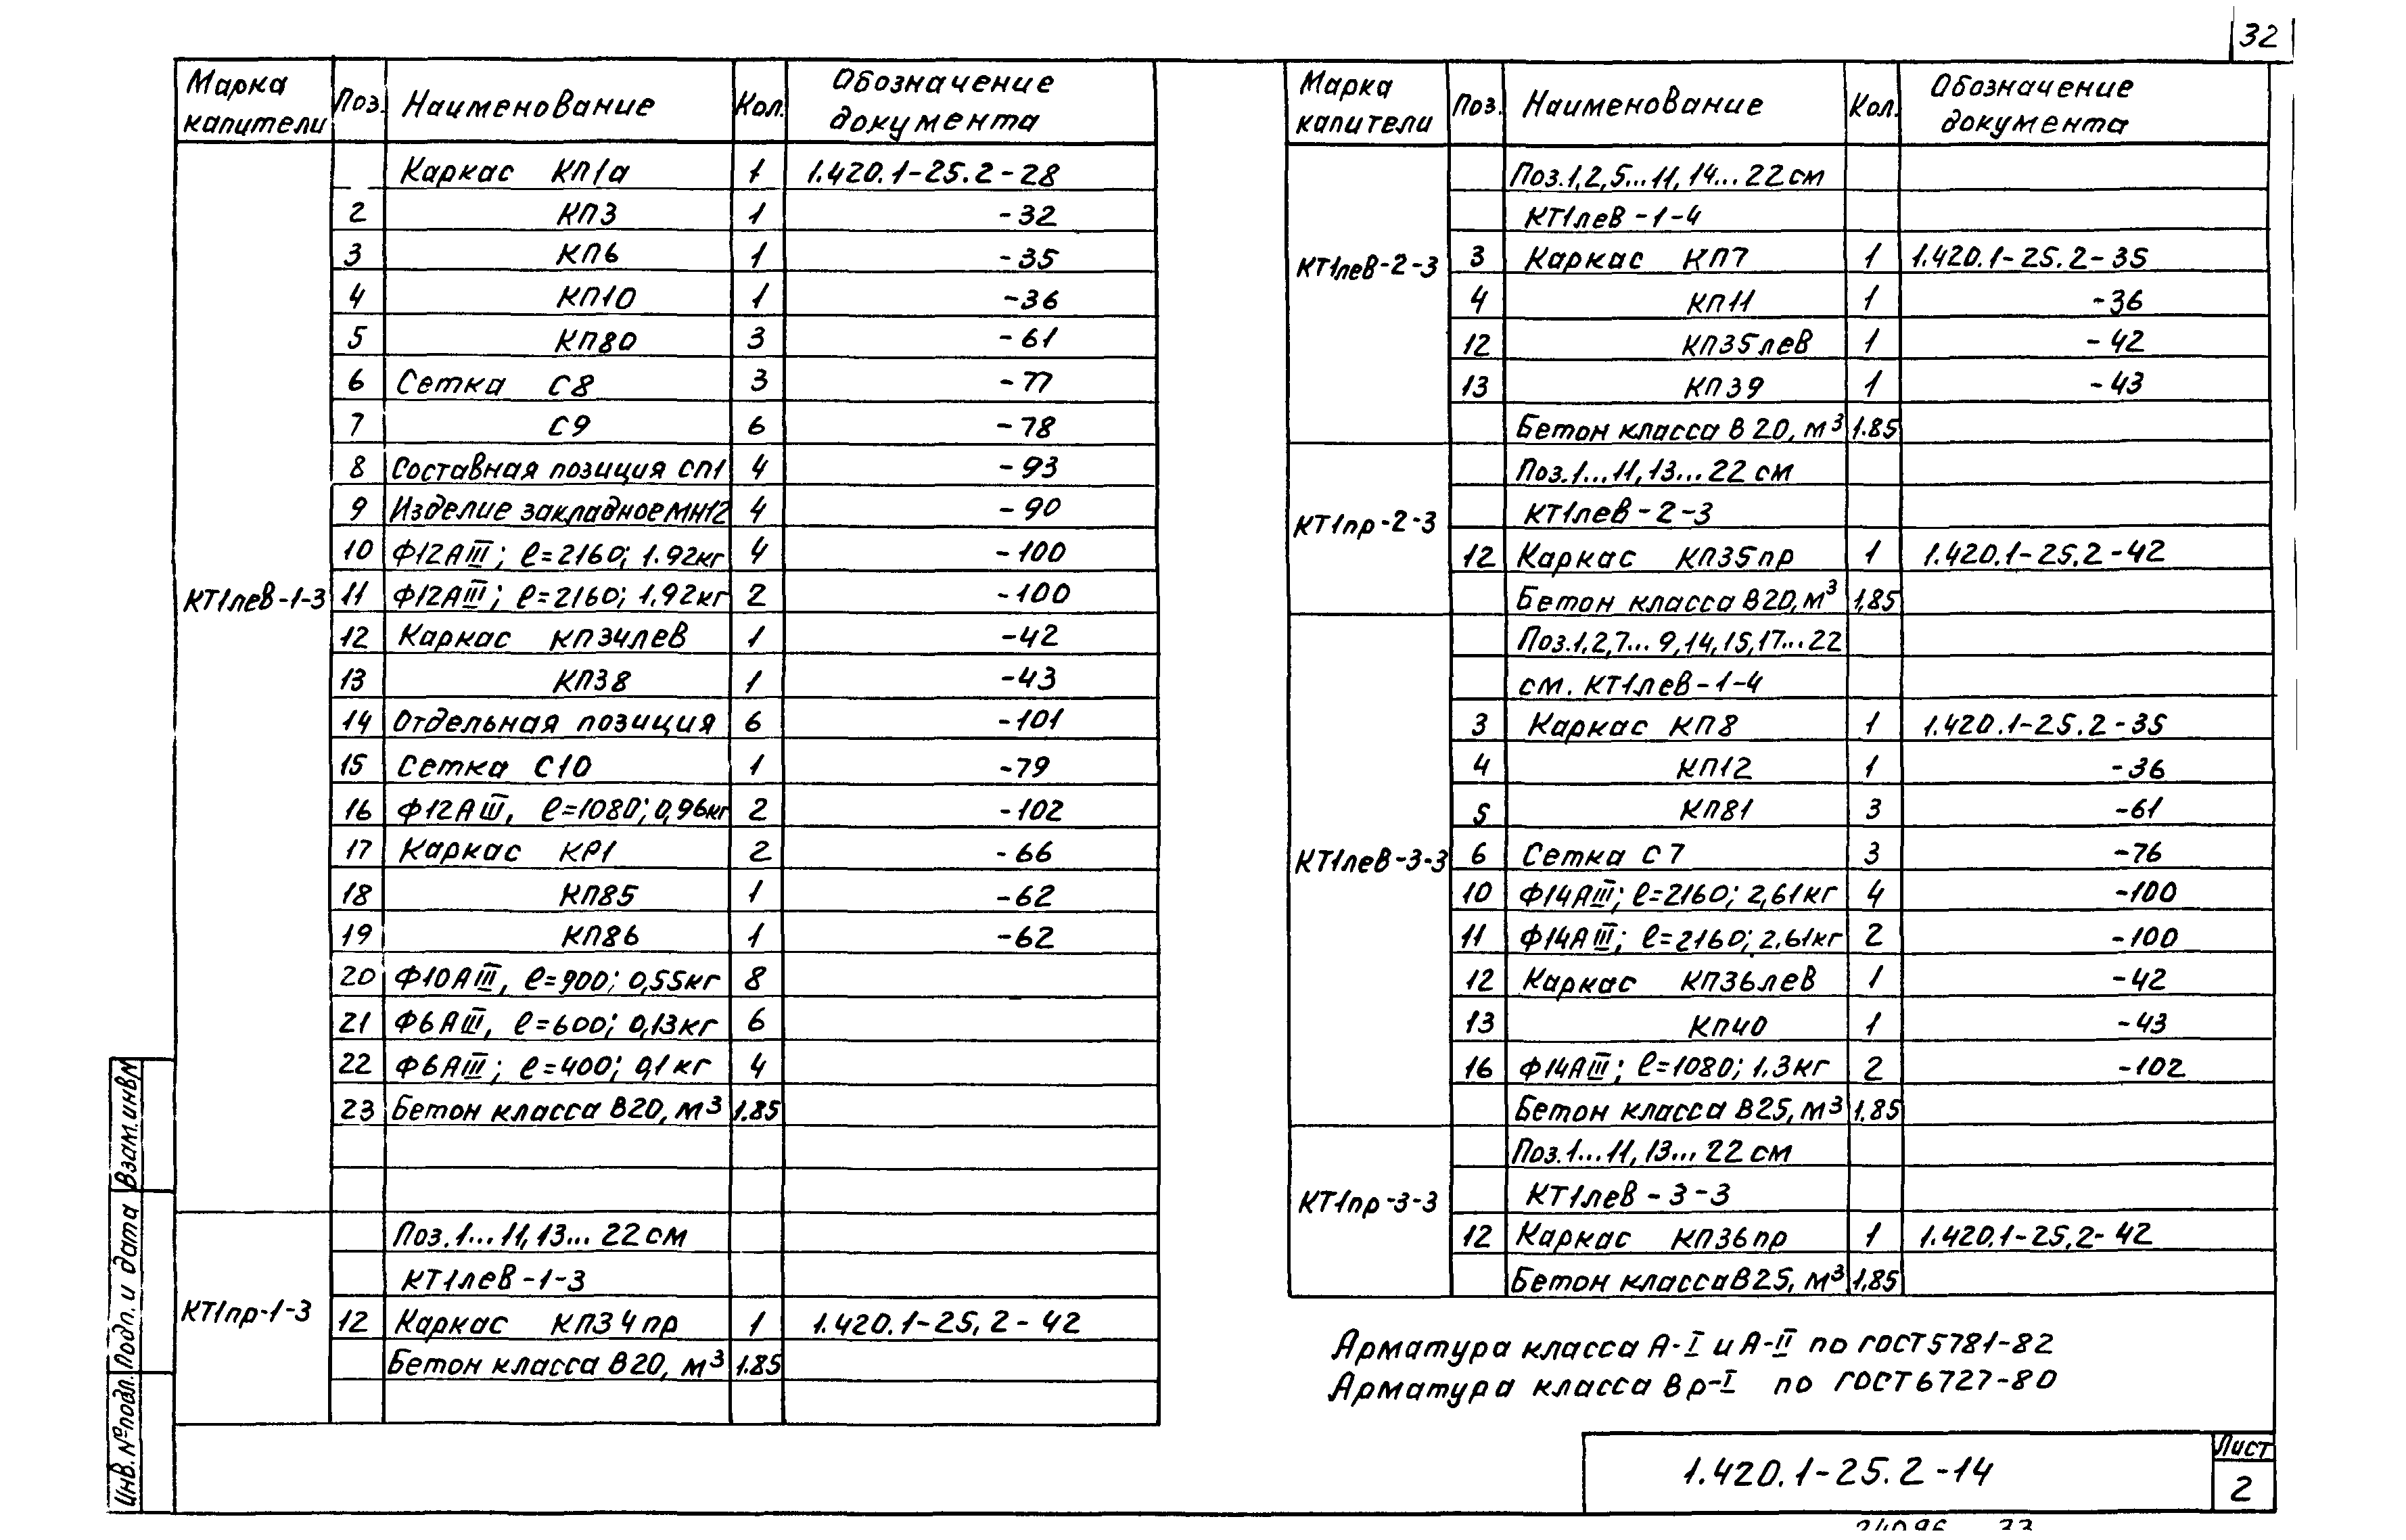 32
Марка капители Поз. Наименование Кол. Обозначение документа
Каркас КП1а 1 1.420.1-25.2-28
2 КП3 1 -32
3 КП6 1 -35
4 КП10 1 -36
5 КП80 3 -61
6 Сетка С8 3 -77
7 С9 6 -78
8 Составная позиция СП1 4 -93
9 Изделие закладное МН12 4 -90
10 Ф12АIII; ℓ=2160; 1.92кг 4 -100
КТ1лев-1-3 11 Ф12АIII; ℓ=2160; 1,92кг 2 -100
12 Каркас КП34лев 1 -42
13 КП38 1 -43
14 Отдельная позиция 6 -101
15 Сетка С10 1 -79
16 Ф12АIII, ℓ=1080; 0,96кг 2 -102
17 Каркас КР1 2 -66
18 КП85 1 -62
19 КП86 1 -62
20 Ф10АIII, ℓ=900; 0,55кг 8
21 Ф6АIII, ℓ=600; 0,13кг 6
22 Ф6АIII; ℓ=400; 0,1кг 4
23 Бетон класса В20, м³ 1.85
Поз.1...11,13...22 см
КТ1лев-1-3
КТ1пр-1-3 12 Каркас КП34пр 1 1.420.1-25,2-42
Бетон класса В20, м³ 1.85
Марка капители Поз. Наименование Кол. Обозначение документа
Поз.1,2,5...11,14...22 см
КТ1лев-1-4
КТ1лев-2-3 3 Каркас КП7 1 1.420.1-25.2-35
4 КП11 1 -36
12 КП35лев 1 -42
13 КП39 1 -43
Бетон класса В20, м³ 1.85
Поз.1...11,13...22 см
КТ1пр-2-3 КТ1лев-2-3
12 Каркас КП35пр 1 1.420.1-25.2-42
Бетон класса В20, м³ 1,85
Поз.1,2,7...9,14,15,17...22
см. КТ1лев-1-4
3 Каркас КП8 1 1.420.1-25.2-35
4 КП12 1 -36
5 КП81 3 -61
КТ1лев-3-3 6 Сетка С7 3 -76
10 Ф14АIII; ℓ=2160; 2,61кг 4 -100
11 Ф14АIII; ℓ=2160; 2,61кг 2 -100
12 Каркас КП36лев 1 -42
13 КП40 1 -43
16 Ф14АIII; ℓ=1080; 1.3кг 2 -102
Бетон класса В25, м³ 1.85
Поз.1...11,13...22 см
КТ1пр-3-3 КТ1лев-3-3
12 Каркас КП36пр 1 1.420.1-25,2-42
Бетон класса В25, м³ 1,85
Арматура класса А-I и А-II по ГОСТ 5781-82
Арматура класса Вр-I по ГОСТ 6727-80
1.420.1-25.2-14
Лист
2
Инв.№подл. Подп. и дата Взам.инв№